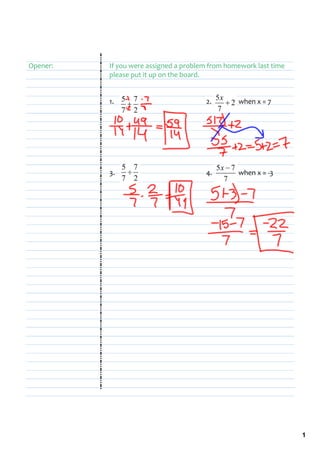 Opener:
If you were assigned a problem from homework last time
please put it up on the board.
1. 5/7 + 7/2
10/14 + 49/14 = 59/14
2. 5x/7 + 2 when x = 7
5(7)/7 + 2
35/7 + 2 = 5 + 2 = 7
3. 5/7 ÷ 7/2
5/7 · 2/7 = 10/49
4. (5x − 7)/7 when x = -3
5(-3) - 7
7
(-15 - 7)/7 = -22/7
1